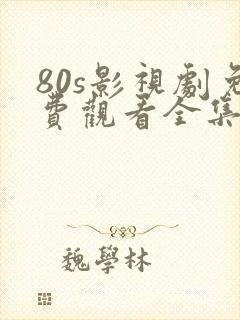 80s影視劇免
費觀看全集
魏學林